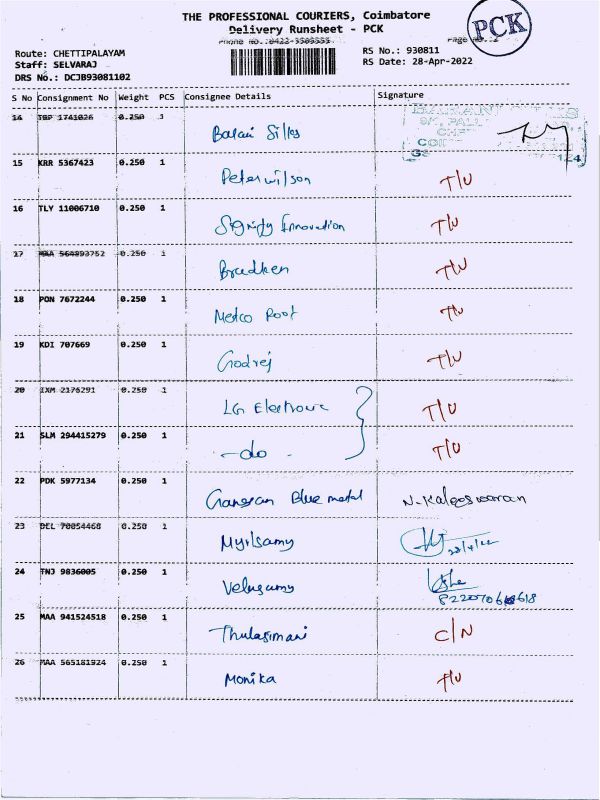 THE PROFESSIONAL COURIERS, Coimbatore
Delivery Runsheet - PCK
PCK
Phone No.:0422-3505555
Page No.:2
Route: CHETTIPALAYAM
RS No.: 930811
Staff: SELVARAJ
RS Date: 28-Apr-2022
DRS No.: DCJB93081102
S No Consignment No Weight PCS Consignee Details Signature
14 TBP 1741026 0.250 1 Balaji Silks
15 KRR 5367423 0.250 1 Peter wilson T/U
16 TLY 11006710 0.250 1 Signify Innovation T/U
17 MAA 564893752 0.250 1 Bradken T/U
18 PON 7672244 0.250 1 Metco Roof T/U
19 KDI 707669 0.250 1 Godrej T/U
20 IXM 2176291 0.250 1 LG Electronic T/U
21 SLM 294415279 0.250 1 -do- T/U
22 PDK 5977134 0.250 1 Ganesan Blue metal N.Kaleeswaran
23 DEL 70054468 0.250 1 Mylsamy 28/4/22
24 TNJ 9836005 0.250 1 Velusamy
25 MAA 941524518 0.250 1 Thulasimani C/N
26 MAA 565181924 0.250 1 Monika T/U